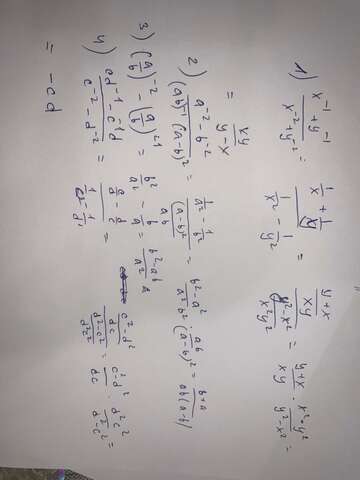 1) \frac{x^{-1} + y^{-1}}{x^{-2} + y^{-2}} = \frac{\frac{1}{x} + \frac{1}{y}}{\frac{1}{x^2} - \frac{1}{y^2}} = \frac{\frac{y+x}{xy}}{\frac{y^2-x^2}{x^2y^2}} = \frac{y+x}{xy} \cdot \frac{x^2 \cdot y^2}{y^2-x^2} =
= \frac{xy}{y-x}
2) \frac{a^{-2} - b^{-2}}{(ab)^{-1} (a-b)^2} = \frac{\frac{1}{a^2} - \frac{1}{b^2}}{\frac{(a-b)^2}{ab}} = \frac{b^2-a^2}{a^2b^2} \cdot \frac{ab}{(a-b)^2} = \frac{b+a}{ab(a-b)}
3) (\frac{a}{b})^{-2} - (\frac{a}{b})^{-1} = \frac{b^2}{a^2} - \frac{b}{a} = \frac{b^2-ab}{a^2}
4) \frac{cd^{-1} - c^{-1}d}{c^{-2} - d^{-2}} = \frac{\frac{c}{d} - \frac{d}{c}}{\frac{1}{c^2} - \frac{1}{d^2}} = \frac{\frac{c^2-d^2}{dc}}{\frac{d^2-c^2}{d^2c^2}} = \frac{c^2-d^2}{dc} \cdot \frac{d^2c^2}{d^2-c^2} =
= -cd